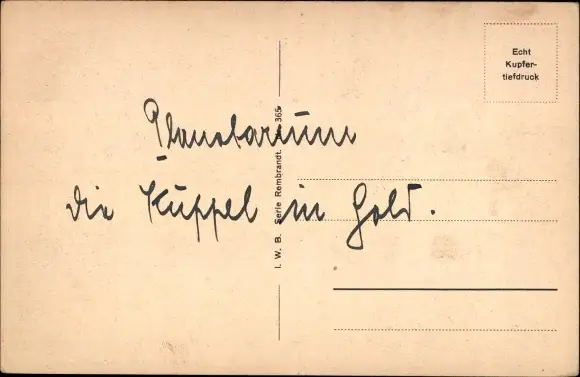 Echt
Kupfer-
tiefdruck
Planetarium
die Kuppel in Gold.
I. W. B. Serie Rembrandt. 365